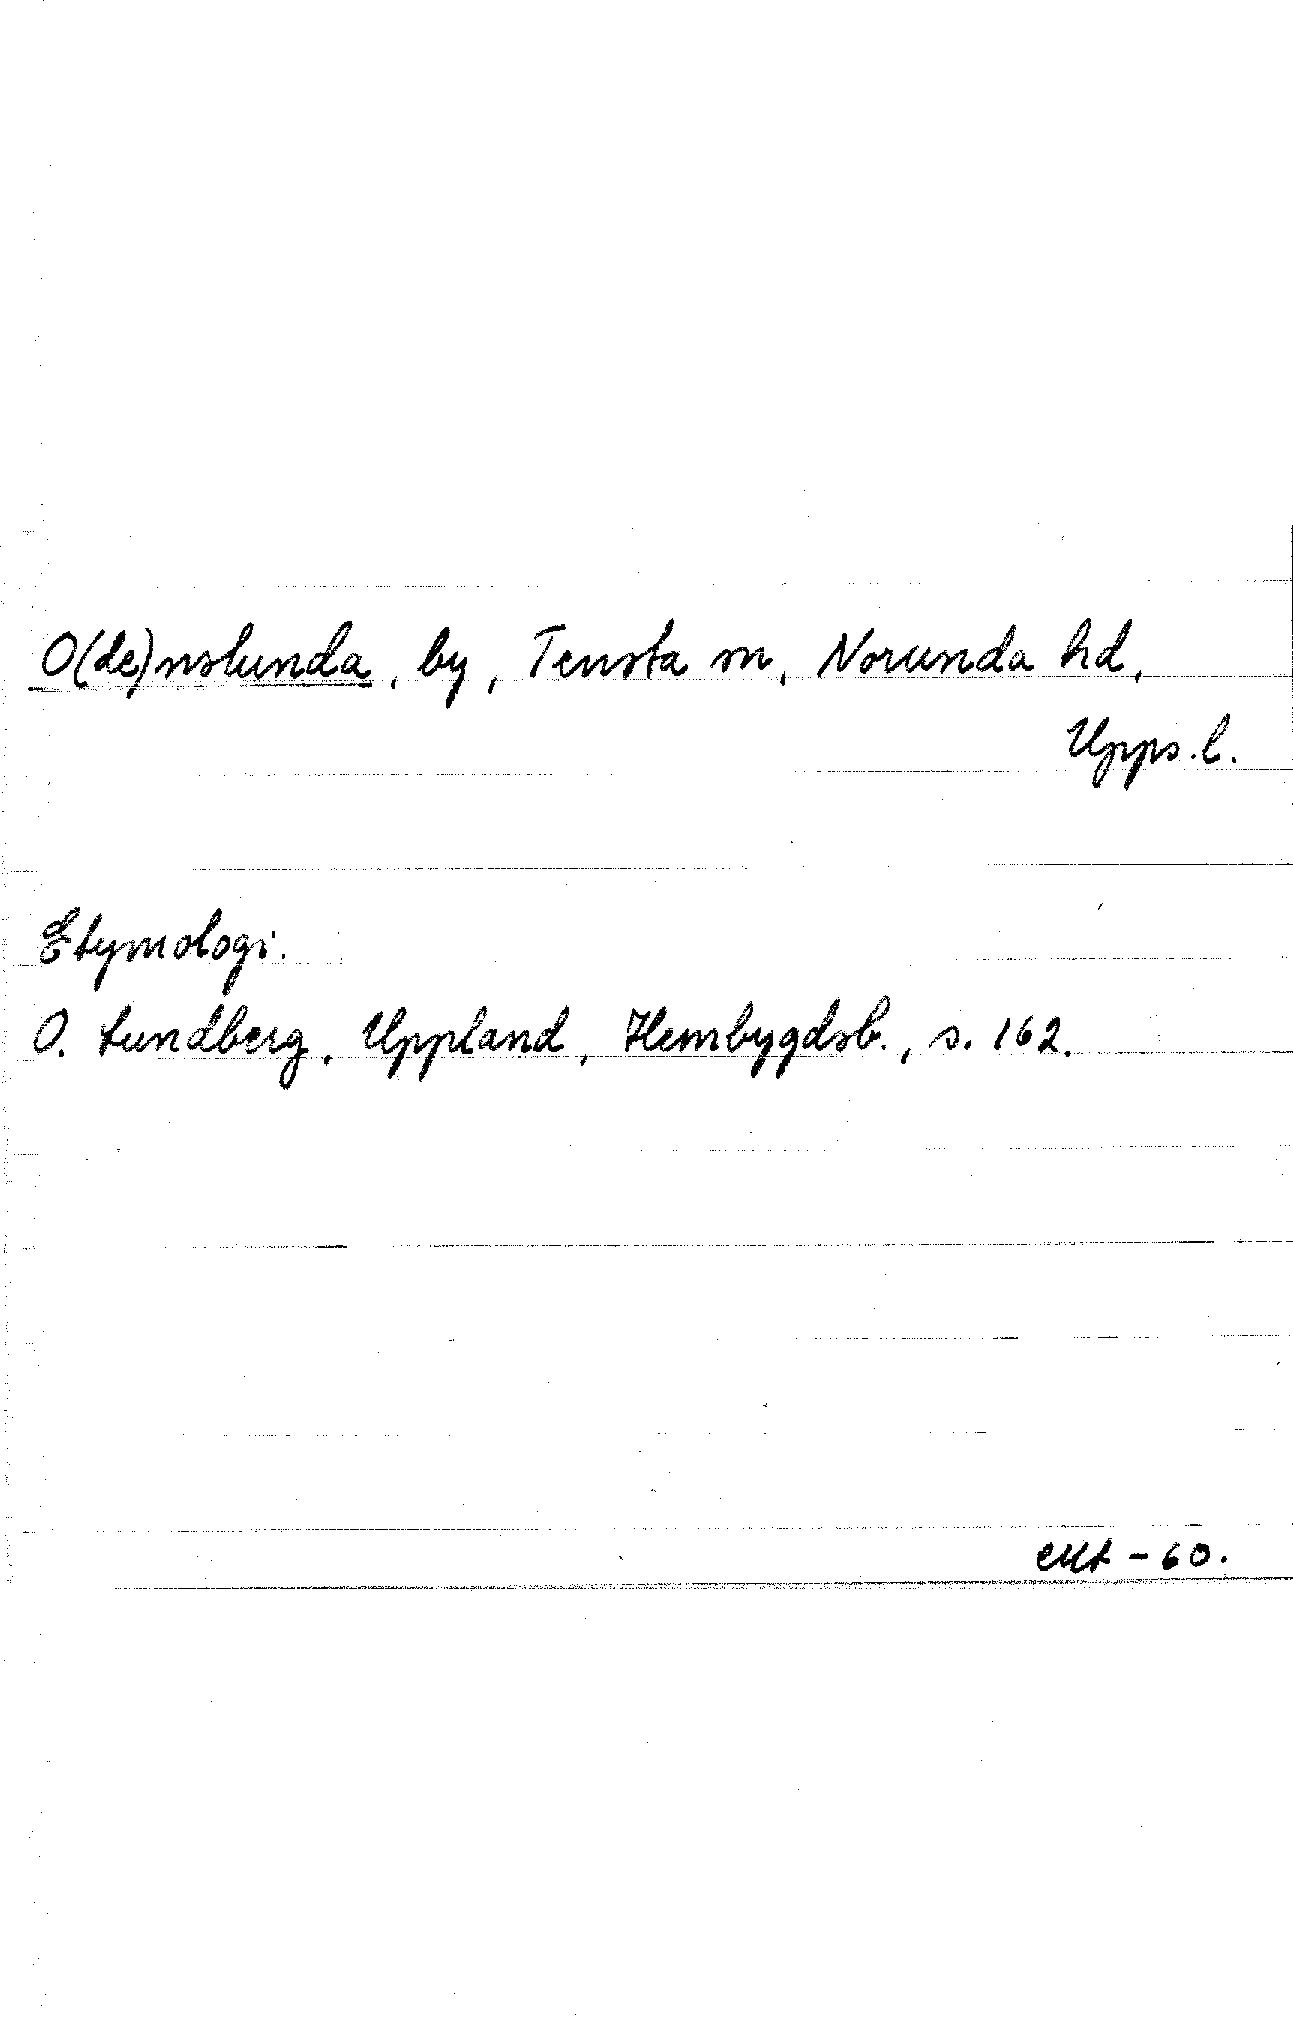 O(de)nslunda, by, Tensta sn, Norunda hd,
Upps. l.
Etymologi.
O. Lundberg, Uppland, Hembygdsb., s. 162.
-60.